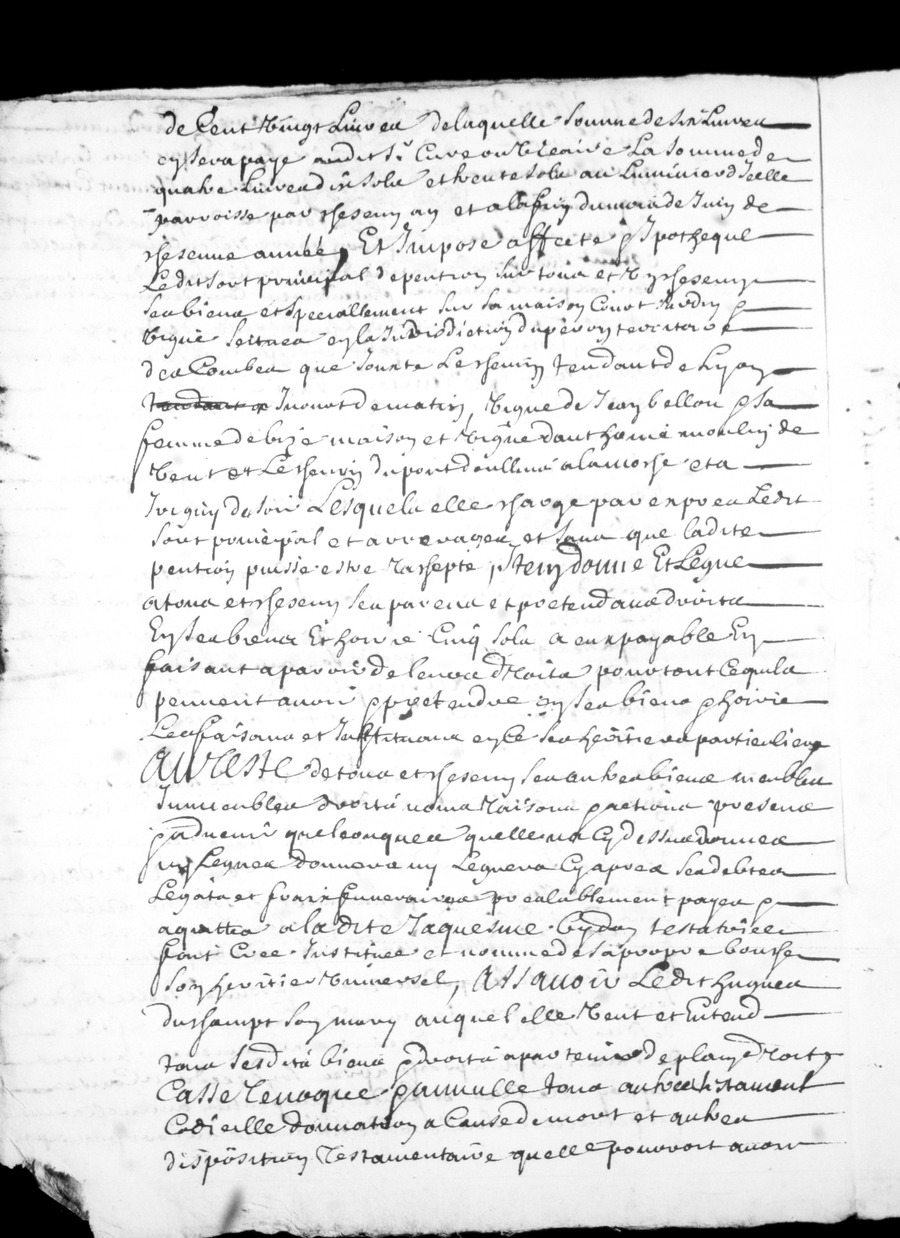 de Cent Vingt Livres de laquelle somme de six Livres
en sera payé audit Sr Curé ou Vicaire La somme de
quatre Livres dix sols et trente sols au Luminier d'Icelle
parroisse par chescun an et a la fin du mois de Juin de
chescune année, Et Impose affecte & Ipotheque
Ledit sort principal de pention sur tous et Vng chescung
ses biens et speciallement sur sa maison Court Jardin &
Vigne scitues en la Jurisdiction du peron territoire
des Combes que Jouxte Le chemin tendant de Lyon
a Givort de matin, Vigne de Jean bellon & sa
femme de bize maison et Vigne d'anthoine moulin de
Vent et Le chemin du pont d'oullins a la morse et a
Irigny du soir Lesquels elle charge par expres Ledit
sort principal et arrerages et sans que ladite
pention puisse estre rachepté, Item donne Et Legue
a tous et chescun ses parens et pretendans droits
En ses biens Et hoirie Cinq sols a eux payable En
faisant aparoir de leurs droits pour tout Ce quils
peuvent avoir & pretendre en ses biens & hoirie
Les faisans et Instituans en Ce ses heritiers particuliers
AU RESTE de tous et chescun ses autres biens meubles
Immeubles droits noms raisons & actions presens
& advenir quelconques quelle na Cy dessus donnes
ny Legues donnera ny Leguera Cy apres ses debtes
Legats et fraix funeraires prealablement payes &
aquittes a ladite Jaquesme testatrice
fait Cree Institue et nomme de sa propre bouche
son heritier Universel, ASSavoir Ledit hugues
duchampt son mary auquel elle Veut et Entend
tous sesdits biens & droits apartenir de plain droit
Casse revoque & annulle tous autres testament
Codicille donnation a Cause de mort et autres
disposition Testamentaire quelle pouvoit avoir